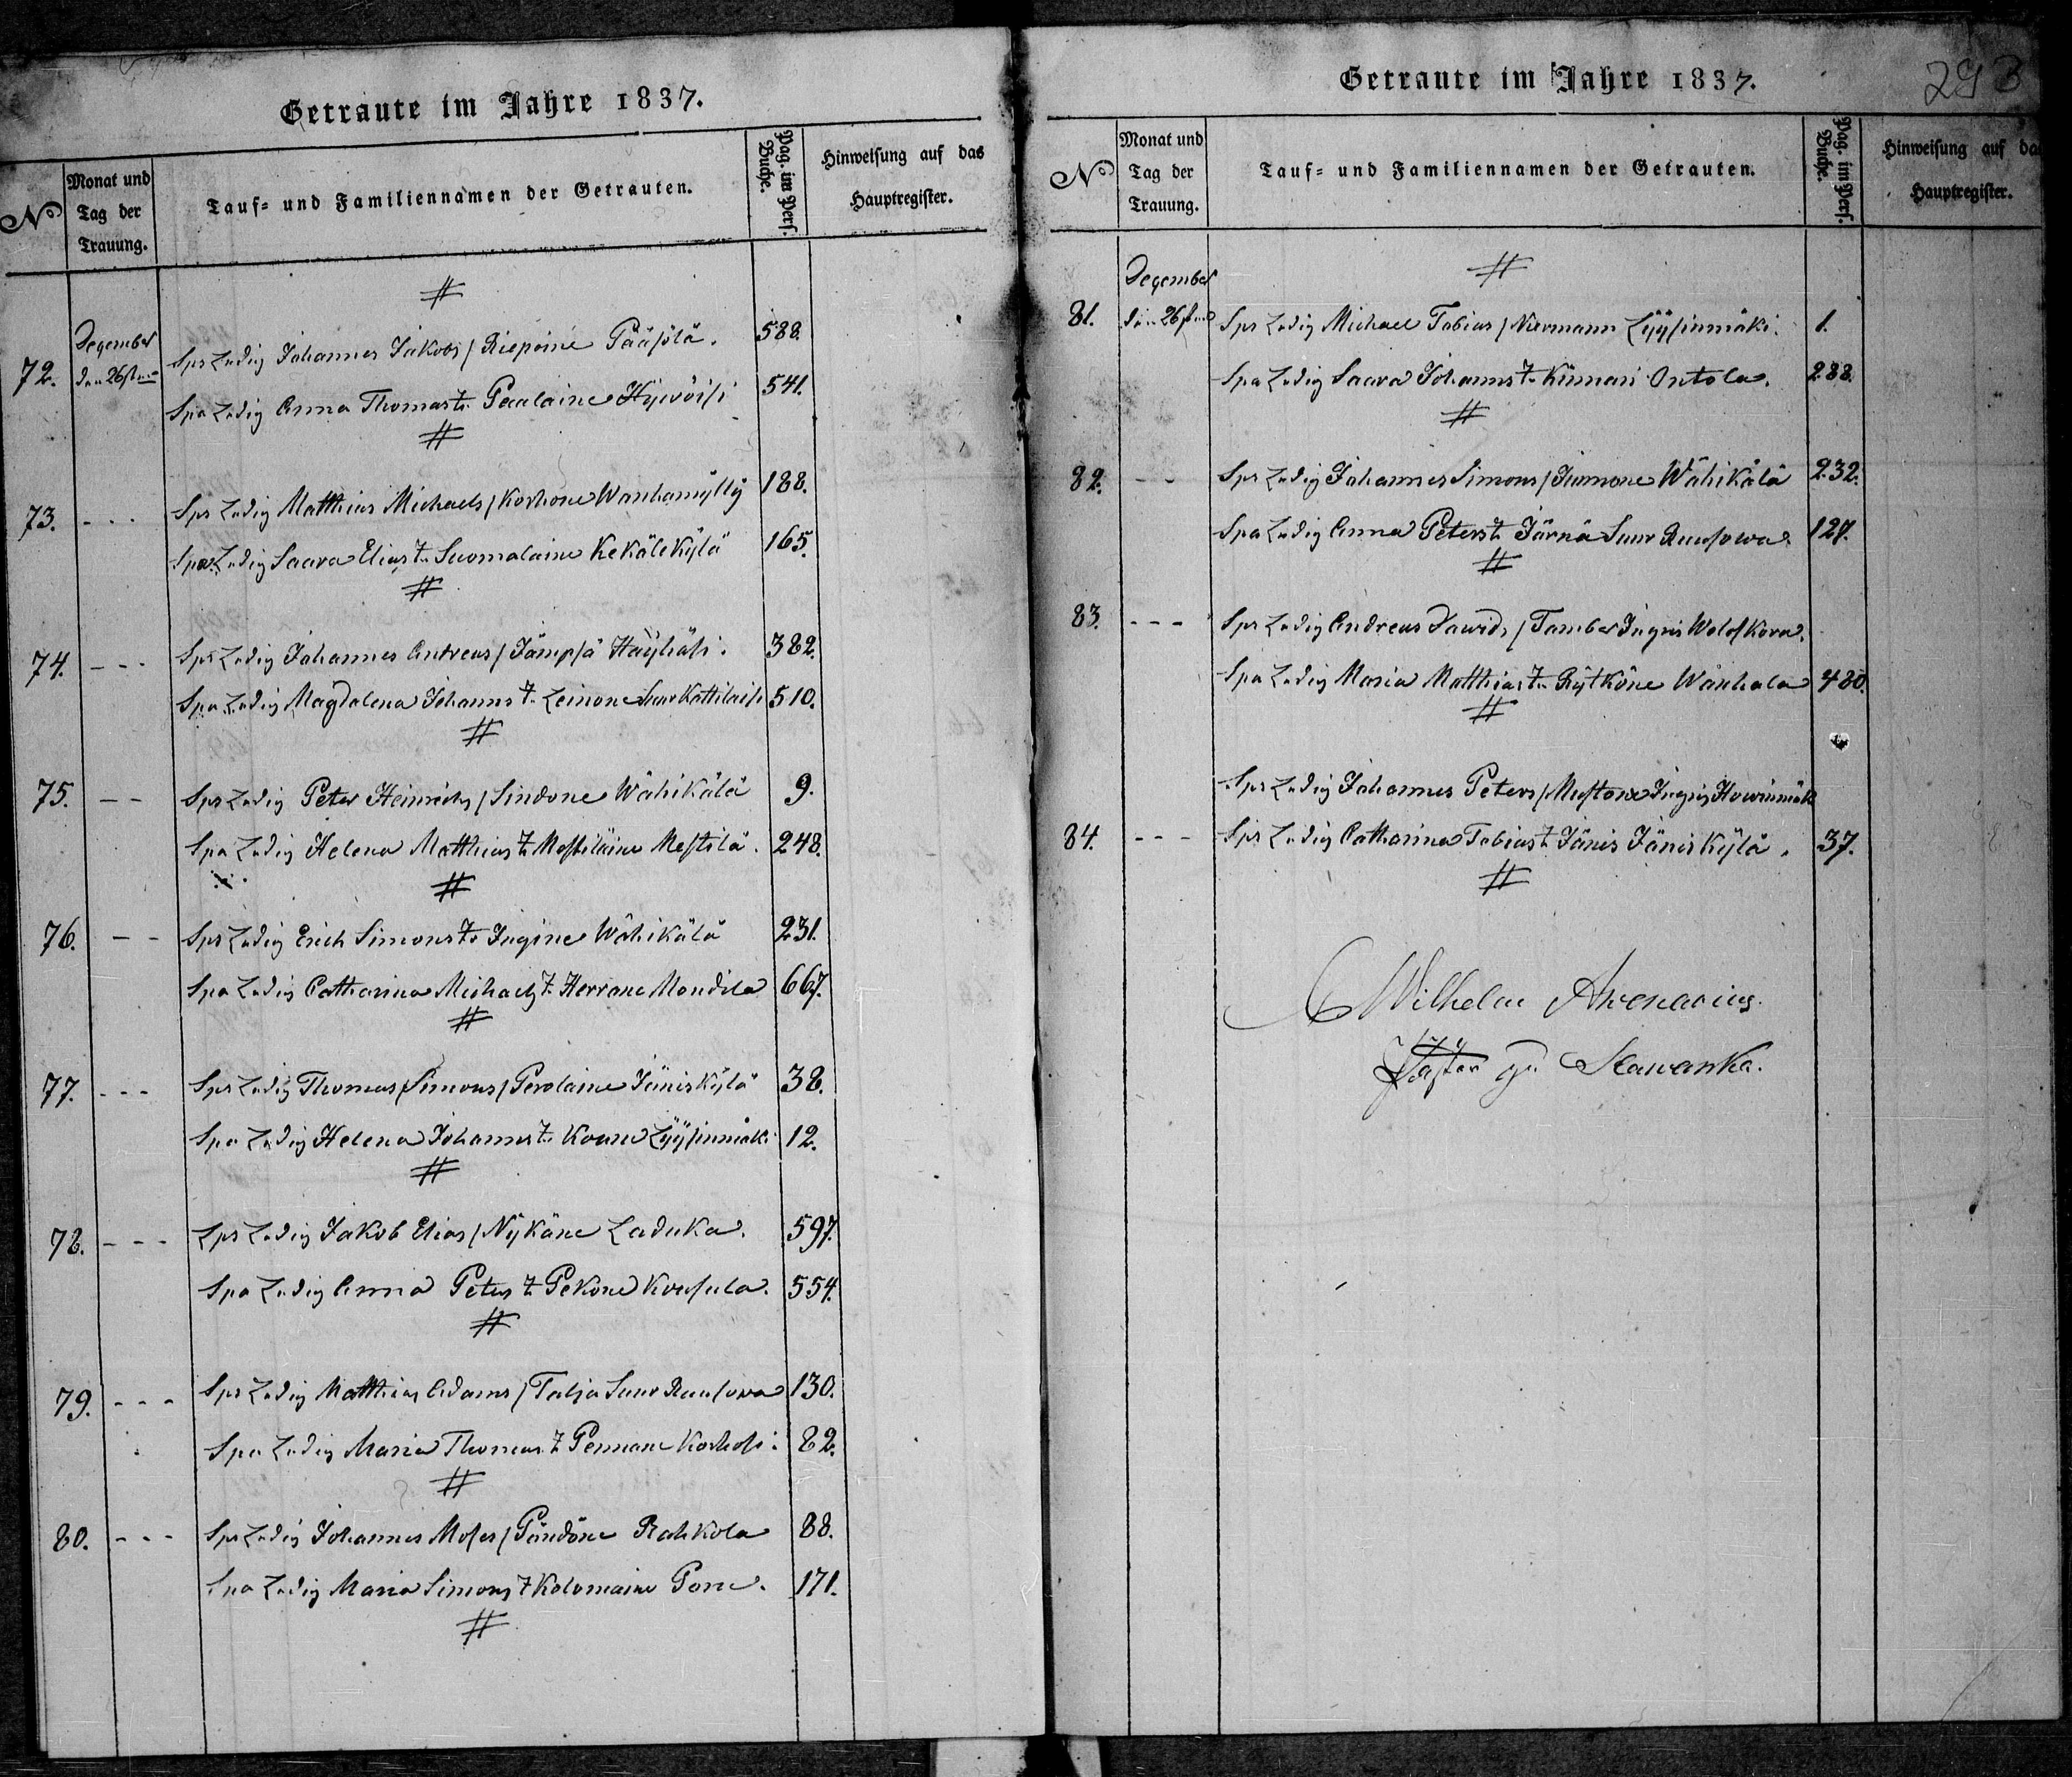 Getraute im Jahre 1837.
No
Monat und Tag der Trauung.
Tauf- und Familiennamen der Getrauten.
Pag. im Pers. Buche.
Hinweisung auf das Hauptregister.
#
December
72. den 26sten Spr Ledig Johannes Jakobs/ Riepoine Pääsölä. 588.
Spa Ledig Anna Thomast. Paulaine Hyivöisi 541.
#
73. - - - Spr Ledig Matthias Michaels/ Korhone Wanhamylly 188.
Spa Ledig Saara Elias t. Suomalaine Kekälekylä 165.
#
74. - - - Spr Ledig Johannes Andreas/ Jämpsä Häyhäsi. 382.
Spa Ledig Magdalena Johanns t. Leinone Suur Kattilaisi 510.
#
75. - - Spr Ledig Peter Heinrichs/ Sindone Wähikälä 9.
Spa Ledig Helena Matthias t. Mestiläine Mestilä. 248.
#
76. - - Spr Ledig Erich Simons t. Ingine Wähikälä 231.
Spa Ledig Catharina Michaels t. Herrane Mondila 667.
#
77. - - - Spr Ledig Thomas Simons/ Perolaine Jäniskylä 38.
Spa Ledig Helena Johanns t. Koune Lyysinmäki 12.
#
78. - - - Spr Ledig Jakob Elias/ Nykäne Laduka. 597.
Spa Ledig Anna Peters t. Pekone Kousula. 554.
#
79. - - - Spr Ledig Matthias Adams/ Talja Suur Rausowa 130.
Spa Ledig Maria Thomas t. Pennane Korhosi. 82.
#
80. - - - Spr Ledig Johannes Moses/ Pöndöne Rahkola 88.
Spa Ledig Maria Simons t. Kolomaine Pone. 171.
#
Getraute im Jahre 1837.
293
No
Monat und Tag der Trauung.
Tauf- und Familiennamen der Getrauten.
Pag. im Pers. Buche.
Hinweisung auf da
Hauptregister.
December #
81. den 26sten Spr Ledig Michael Tobias/ Nurmann Lyysinmäki. 1.
Spa Ledig Saara Johanns t. Kinnari Ontola. 288.
#
82. - - Spr Ledig Johannes Simons/ Immone Wähikälä 232.
Spa Ledig Anna Peters t. Järnä Suur Rausowa. 127.
#
83. - - - Spr Ledig Andreas Dawids/ Tamber Ingris Wolofkowa.
Spa Ledig Maria Matthias t. Rytköne Wanhala 480.
#
Spr Ledig Johannes Peters/ Mustone Ingris Howinmäk
84. - - - Spr Ledig Catharina Tobias t. Jänis Jäniskylä. 37.
#
Wilhelm Avenarius.
Pastor zu Skawanka.